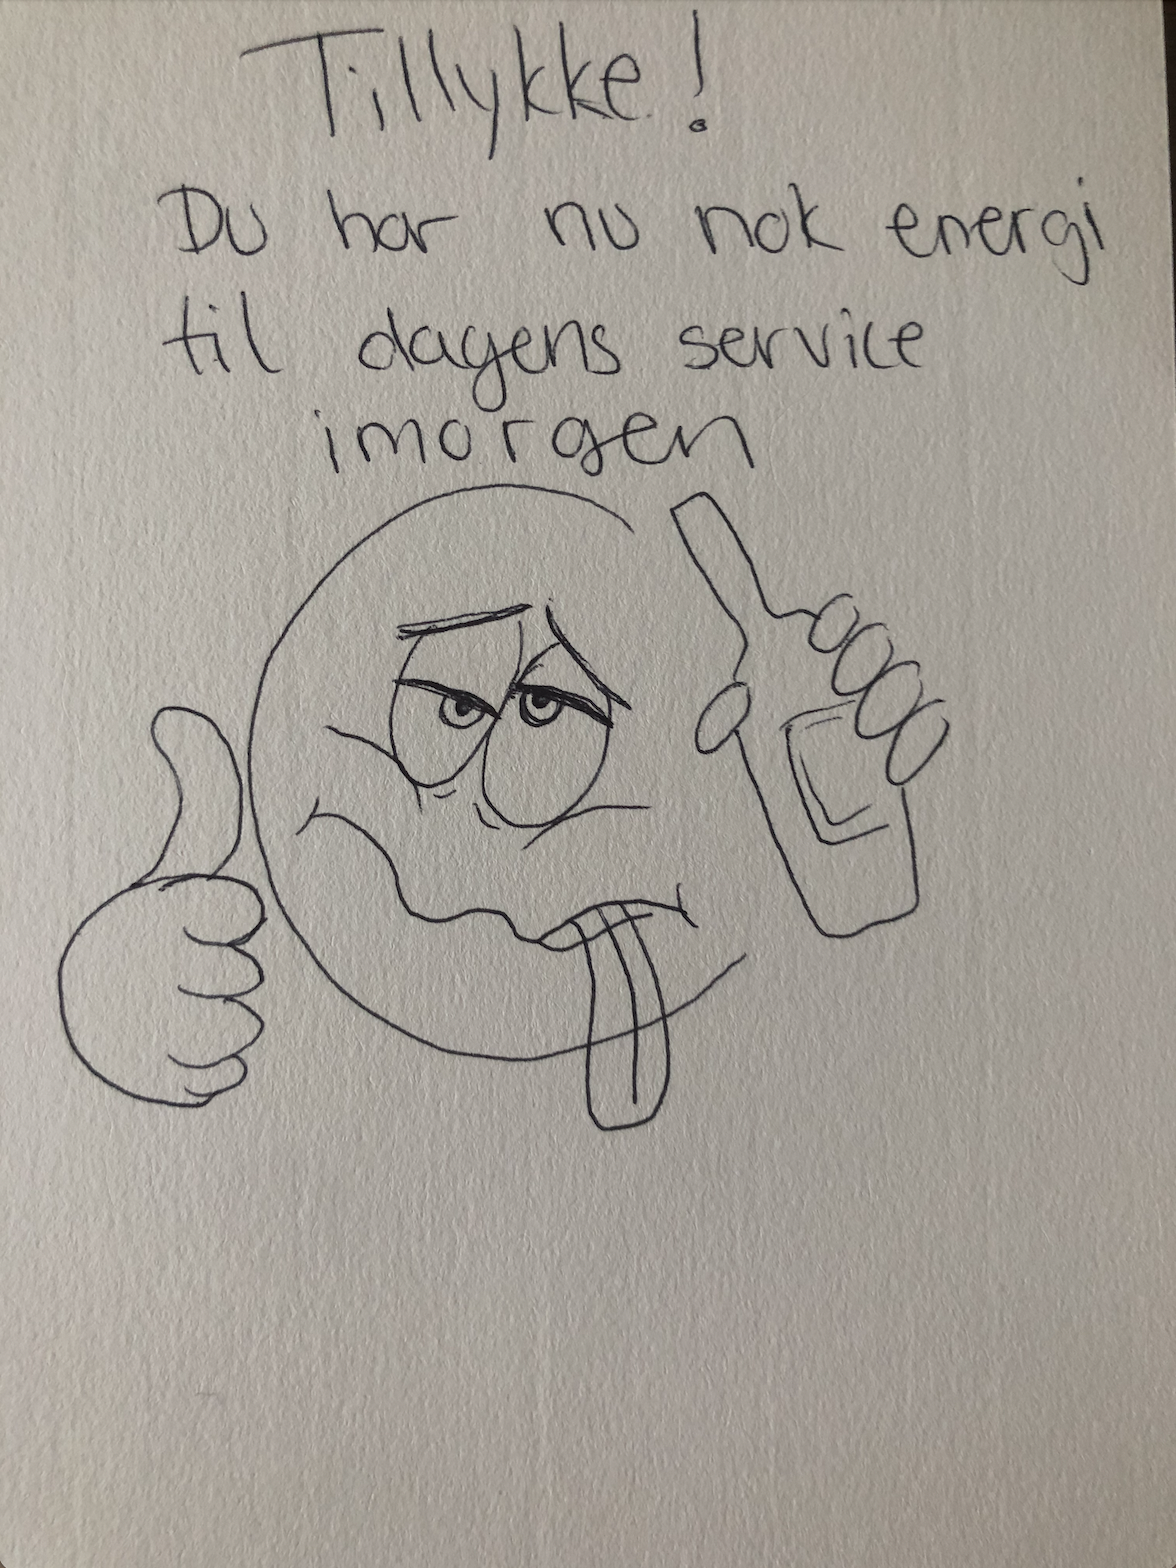 Tillykke!
Du har nu nok energi
til dagens service
imorgen